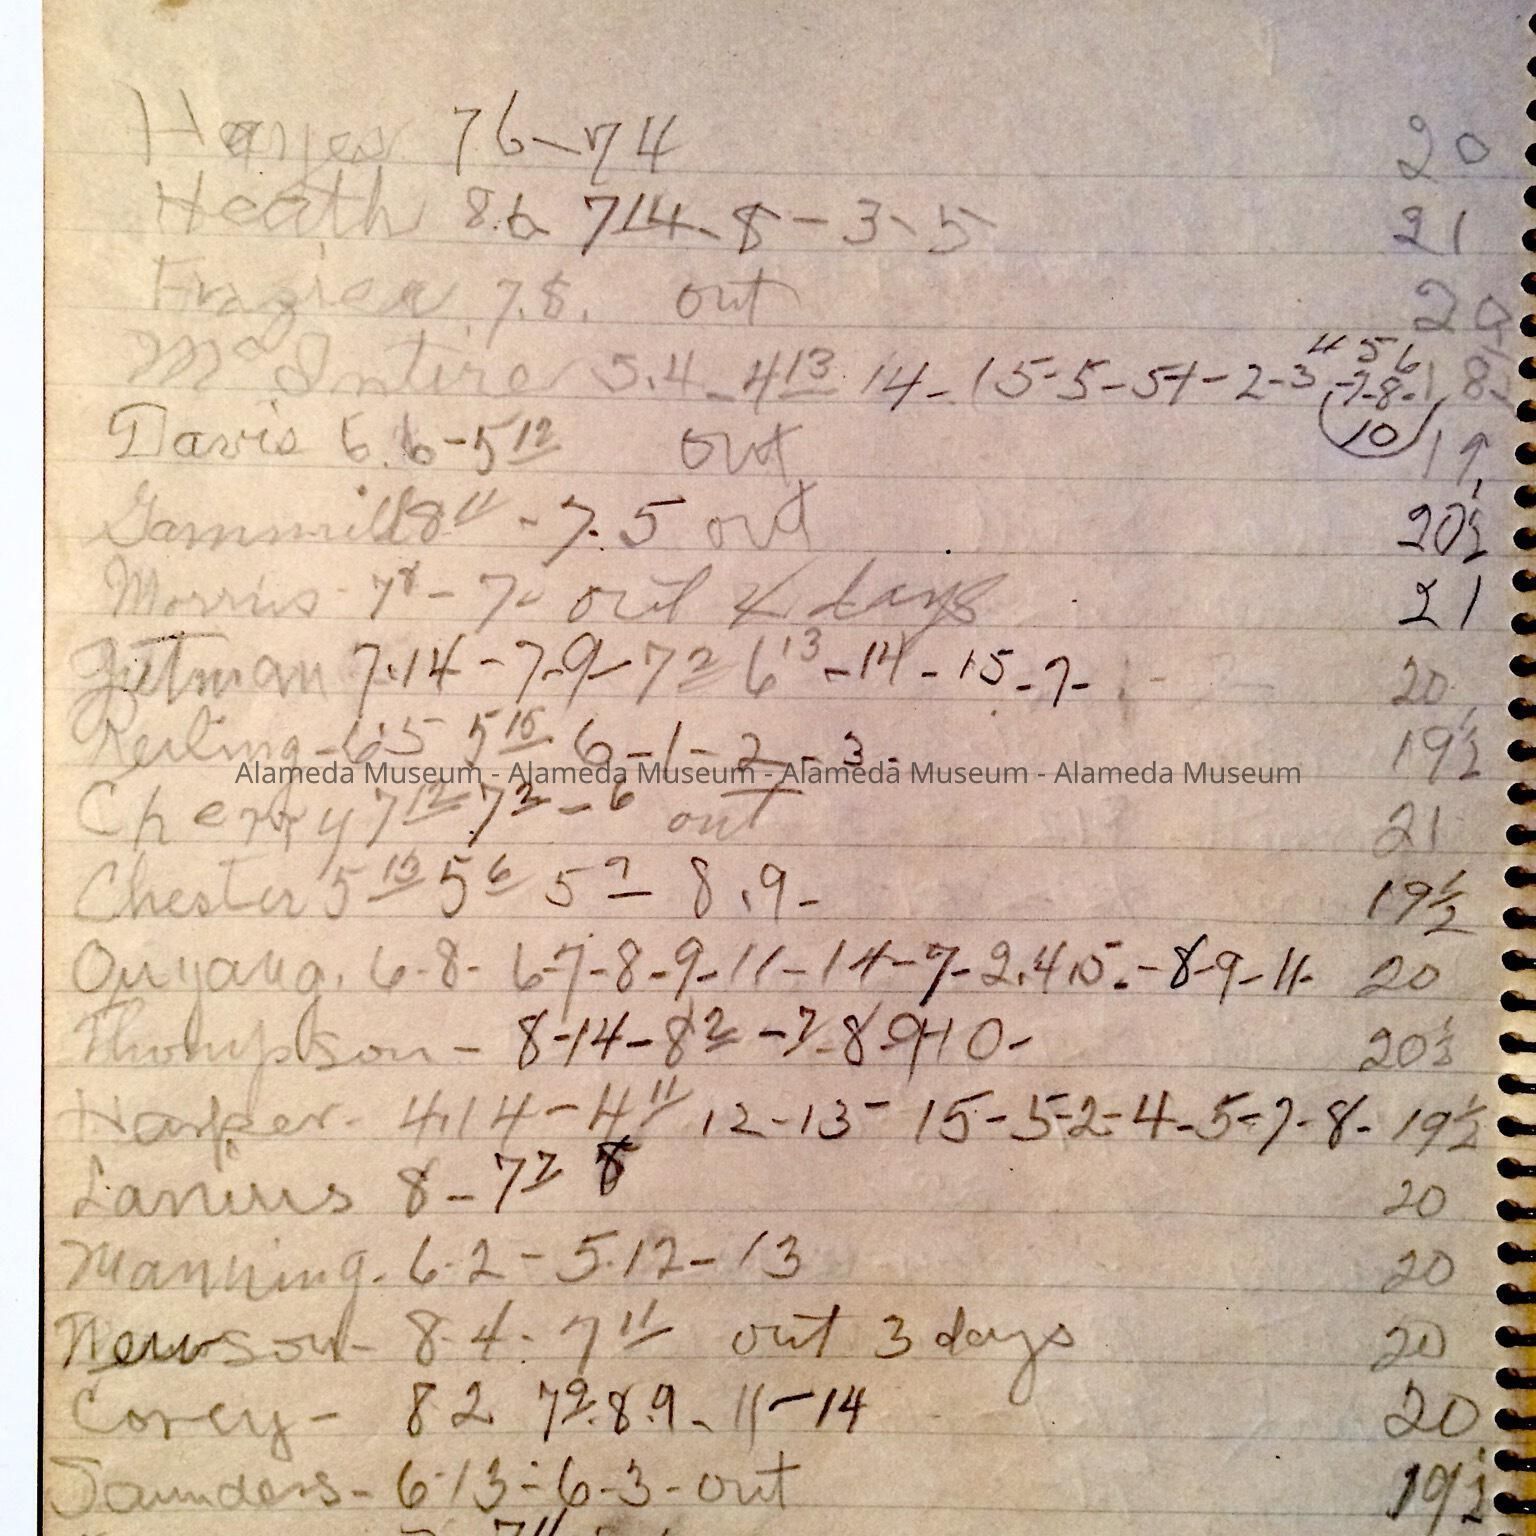 Hayes 76-74 20
Heath 8.6 714-8-3-5 21
Frazier 7.8. out 20
McIntire 5.4-4 13 14-15-5-5+-2-3 4 5 6 -7-8- 10 18
Davis 6.6-5 12 out 19
Gammill 8 11 -7.5 out 20½
Morris- 7 8 - 7- out 4 days 21
Gutman 7.14-7.9-7 2 6 13 -14-15-7- 20
Reiling-6.5 5 15 6-1-2-3- 19½
Alameda Museum - Alameda Museum - Alameda Museum - Alameda Museum
Cherry 7 12 7 2 - 6 out 21
Chester 5 15 5 6 5 7 - 8.9- 19½
Ouyang. 6-8- 6-7-8-9-11-14-7-2.4.5.-8-9-11- 20
Thompson- 8-14-8 2 -7-8-9+10- 20½
Harper- 4.14-4 11 12-13- 15-5-2-4-5-7-8- 19½
Lanius 8-7 7 8 20
Manning. 6.2-5.12-13 20
Newson- 8-4- 7 11 out 3 days 20
Corey- 8 2 7 2.8.9-11-14 20
Saunders- 6-13-6-3-out 19½